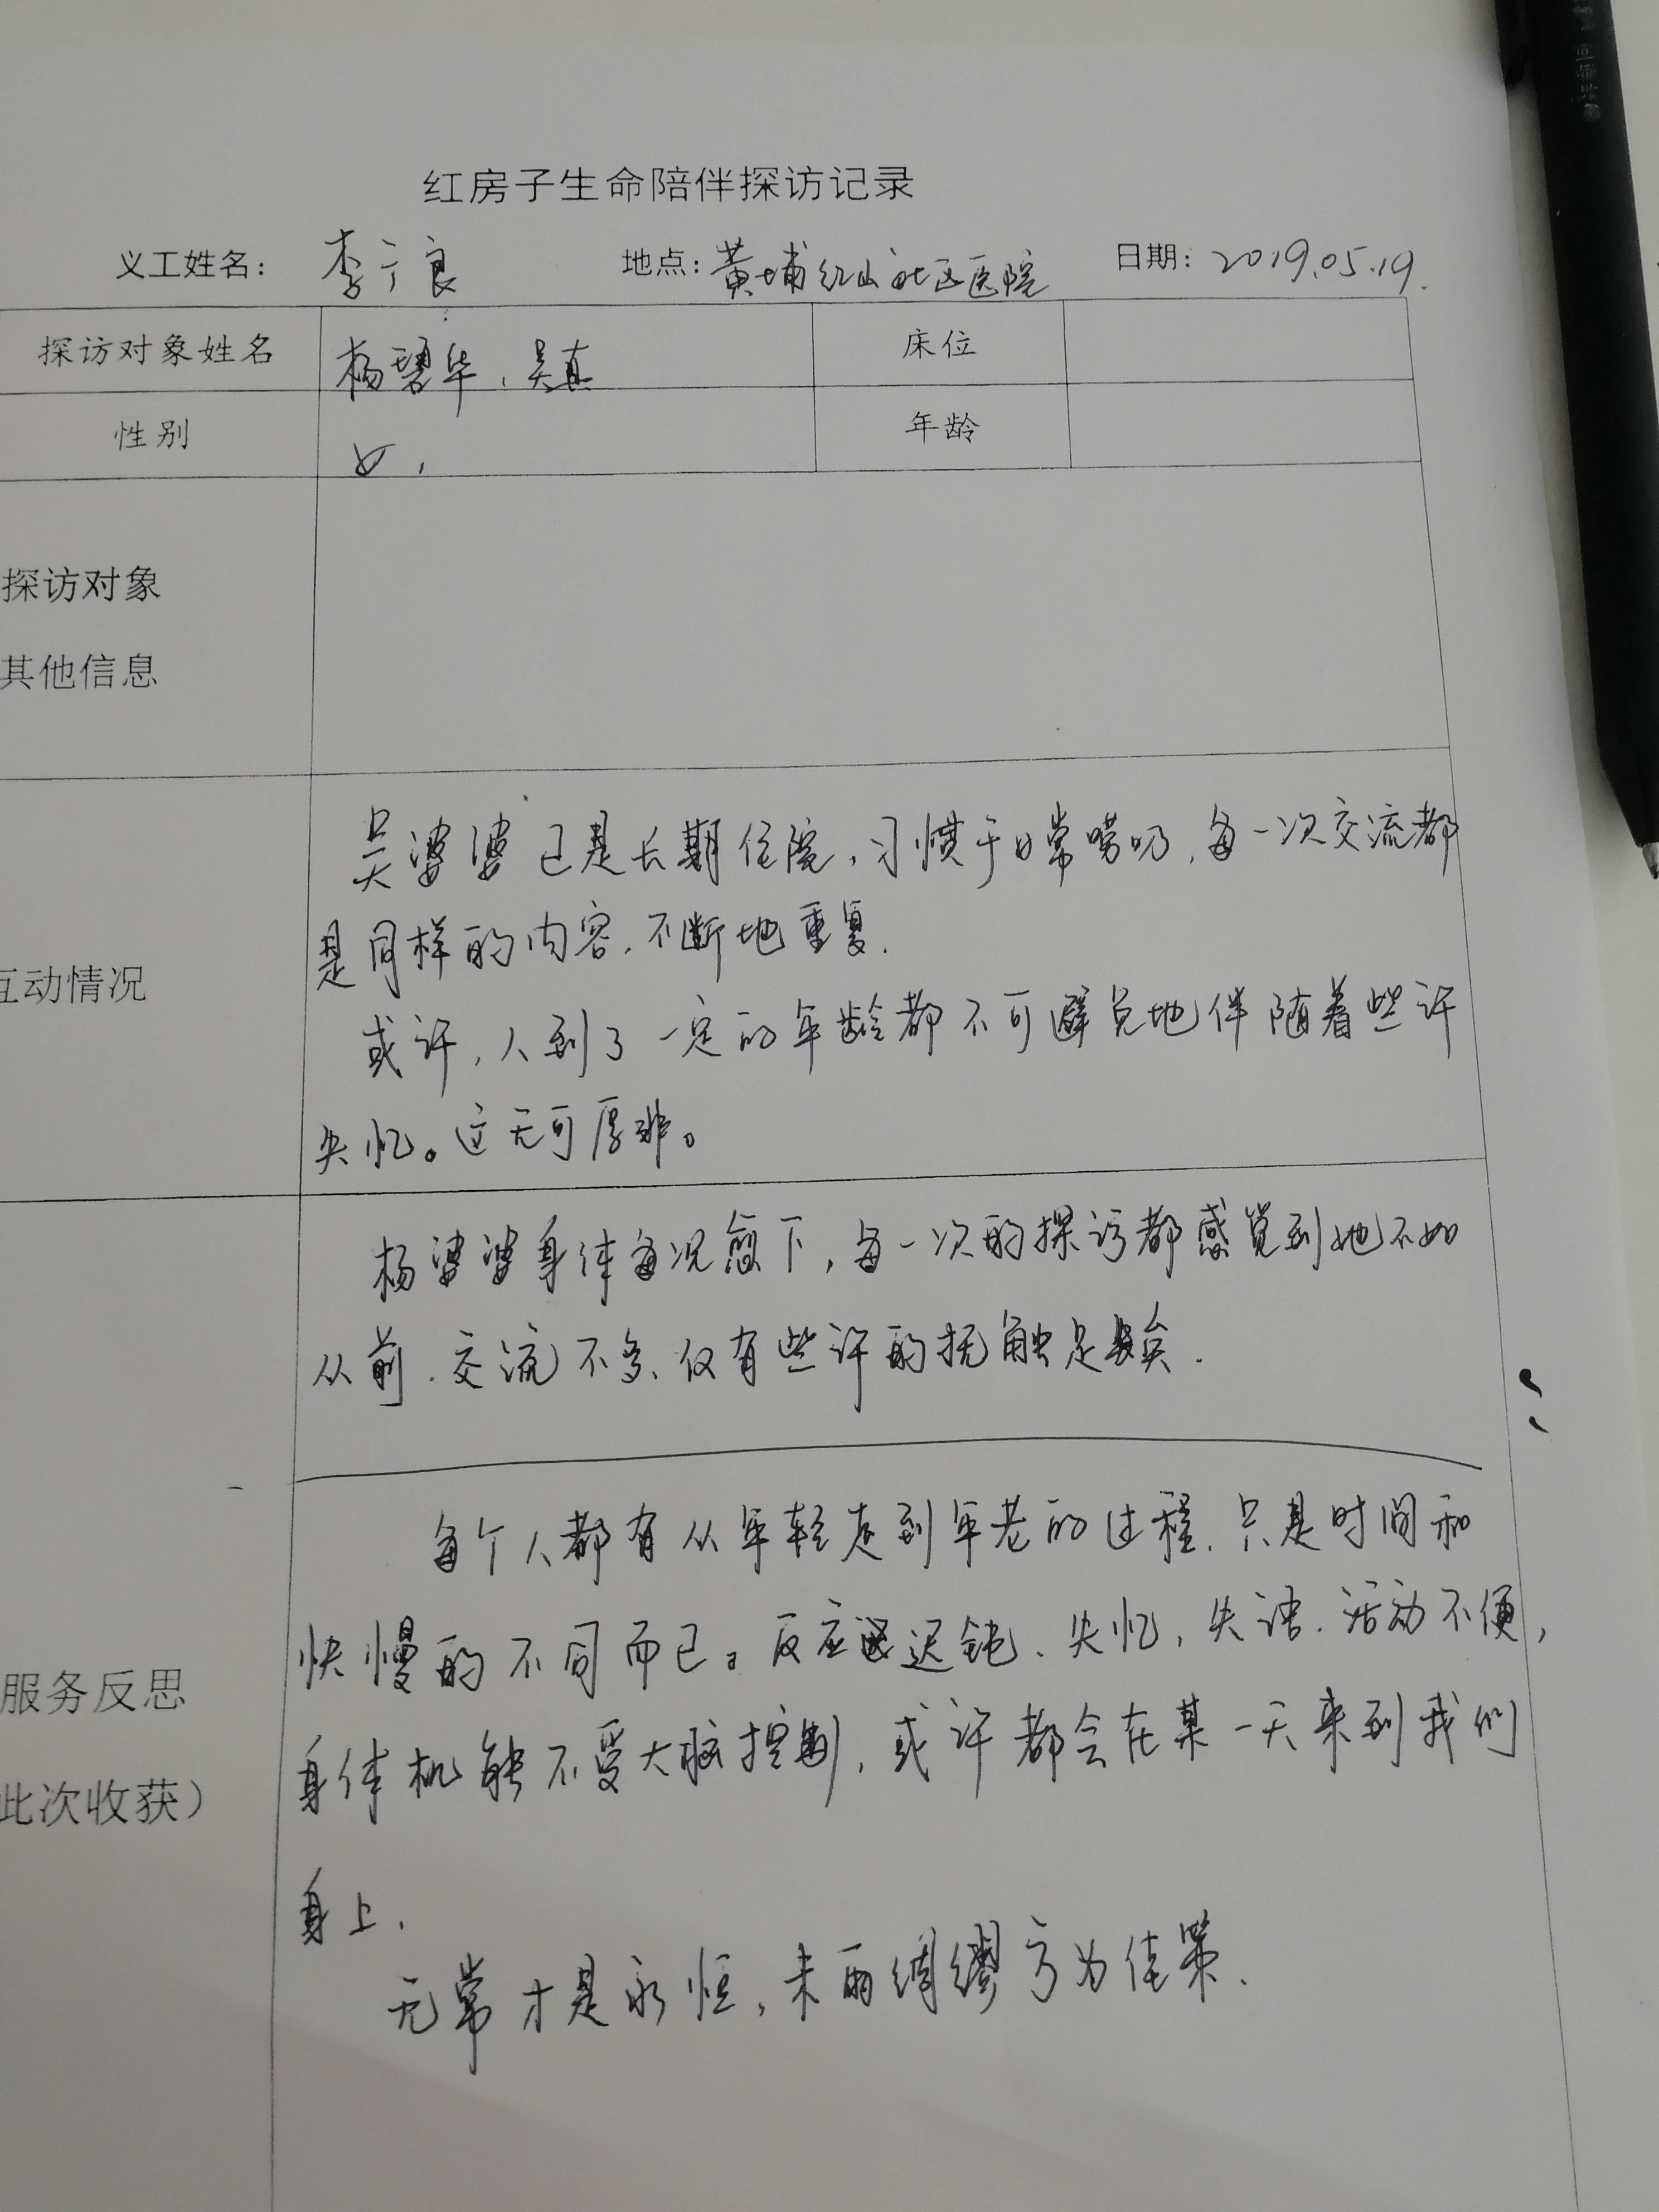 红房子生命陪伴探访记录
义工姓名：李广良 地点：黄埔红山社区医院 日期：2019.05.19.
探访对象姓名 杨碧华、吴真 床位
性别 女， 年龄
探访对象
其他信息
吴婆婆已是长期住院，习惯于日常唠叨，每一次交流都
是同样的内容，不断地重复.
互动情况
或许，人到了一定的年龄都不可避免地伴随着些许
失忆。这无可厚非。
杨婆婆身体每况愈下，每一次的探访都感觉到她不如
从前.交流不多、仅有些许的抚触足矣.
每个人都有从年轻走到年老的过程.只是时间和
快慢的不同而已。反应迟钝、失忆，失语.活动不便，
服务反思
身体机能不受大脑控制，或许都会在某一天来到我们
此次收获）
身上.
无常才是永恒，未雨绸缪方为佳策.